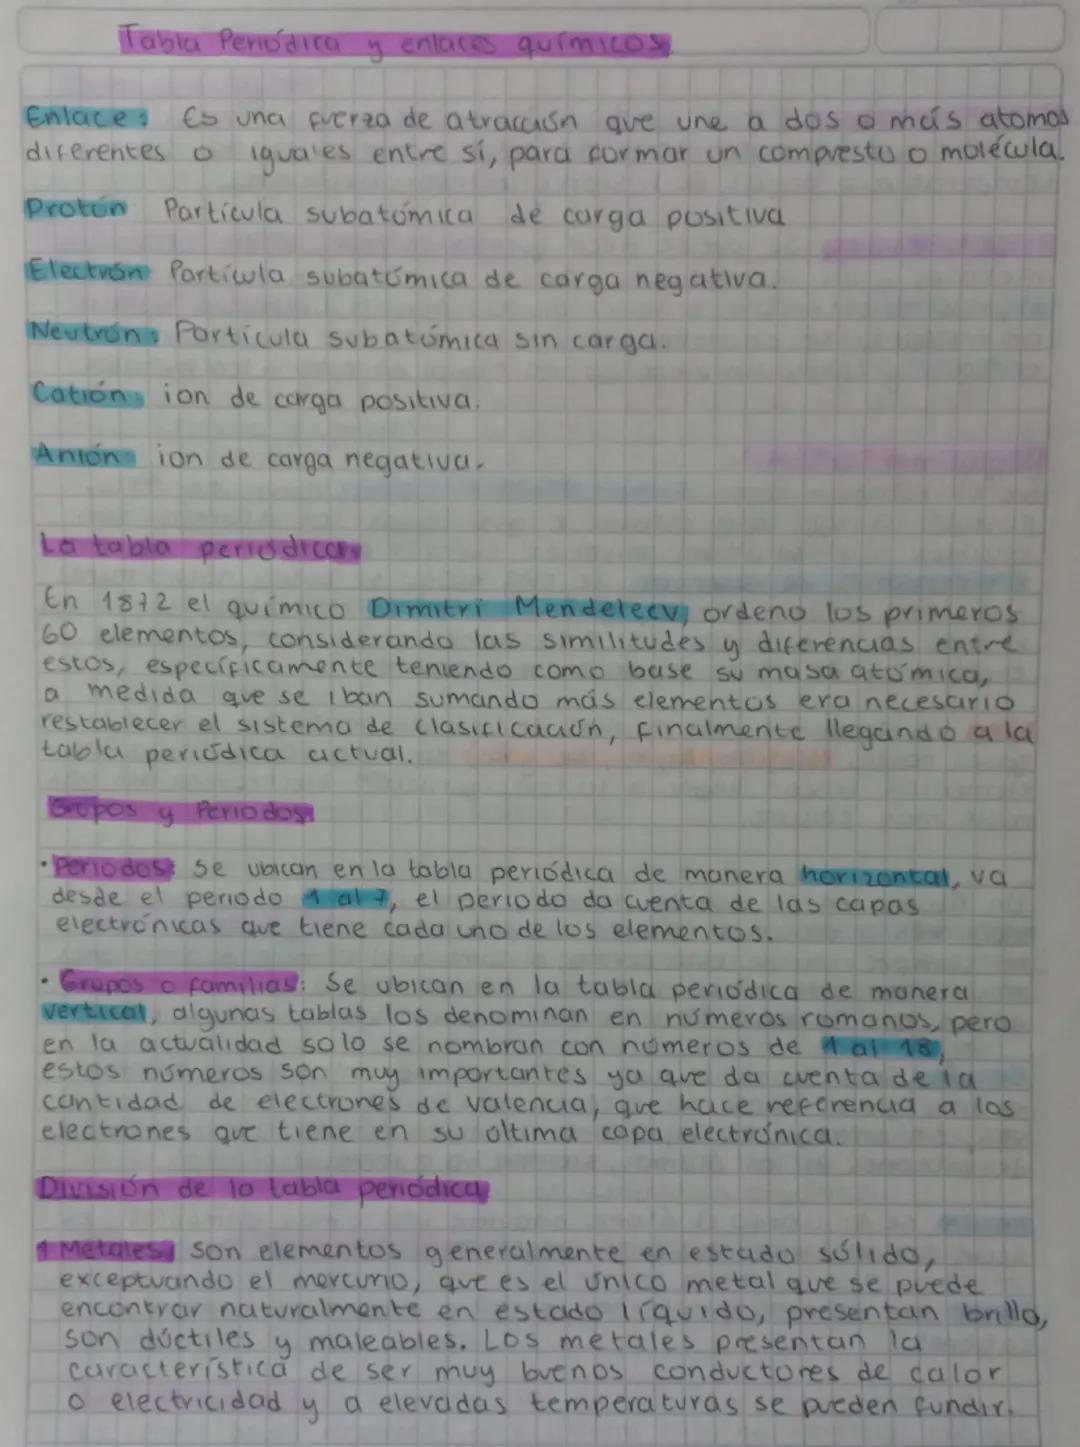 Tabla Periódica y enlaces químicos.
Enlace: Es una fuerza de atracción que une a dos o más atomos
diferentes o iguales entre sí, para formar un compuesto o molécula.
Protón Partícula subatómica de carga positiva
Electrón Partícula subatómica de carga negativa.
Neutrón: Partícula subatómica sin carga.
Catión: ion de carga positiva.
Anión ion de carga negativa.
La tabla periódica
En 1872 el químico Dimitri Mendeleev, ordeno los primeros
60 elementos, considerando las similitudes y diferencias entre
estos, específicamente teniendo como base su masa atómica,
a medida que se iban sumando más elementos era necesario
restablecer el sistema de clasificación, finalmente llegando a la
tabla periódica actual.
Grupos y Periodos
• Periodos: Se ubican en la tabla periódica de manera horizontal, va
desde el periodo 1 al 7, el periodo da cuenta de las capas
electrónicas que tiene cada uno de los elementos.
• Grupos o familias: Se ubican en la tabla periódica de manera
vertical, algunas tablas los denominan en números romanos, pero
en la actualidad solo se nombran con números de 1 al 18,
estos números son muy importantes ya que da cuenta de la
cantidad de electrones de valencia, que hace referencia a los
electrones que tiene en su última capa electrónica.
División de la tabla periódica
1 Metales Son elementos generalmente en estado sólido,
exceptuando el mercurio, que es el único metal que se puede
encontrar naturalmente en estado líquido, presentan brillo,
son dúctiles y maleables. Los metales presentan la
característica de ser muy buenos conductores de calor
o electricidad y a elevadas temperaturas se pueden fundir.